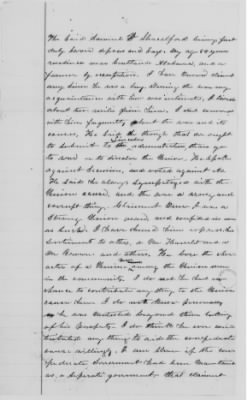 The Said Samuel W Shackelford being first
duly sworn deposes and says. My age 50 years
residence was Courtland Alabama, and a
farmer by occupation. I have known claimant
ever since he was a boy. During the war my
acquaintance with him was intimate, I lived
about one mile from him. I did converse
with him frequently about the war and its
causes, He said he thought that we ought
to submit to the administration than go
to war or to dissolve the Union. He spoke
against Secession, and voted against it
He said he always sympathized with the
Union cause, and the war a wrong and
corrupt thing. Claimant knew I was a
strong Union man, and confided in me
as such. I have heard him express his
sentiments to others, to Mr and
Mr Brown and others. He bore the char
acter of a Union man among the Union men
in the community. I do not he had any
chance to contribute any thing to the Union
cause here I do not know
he was molested beyond them taking
of his property. I do think he ever con
tributed any thing to aid the confederate
cause willingly. I am sure if the con
federate Government had been maintained
as a separate government that claimant